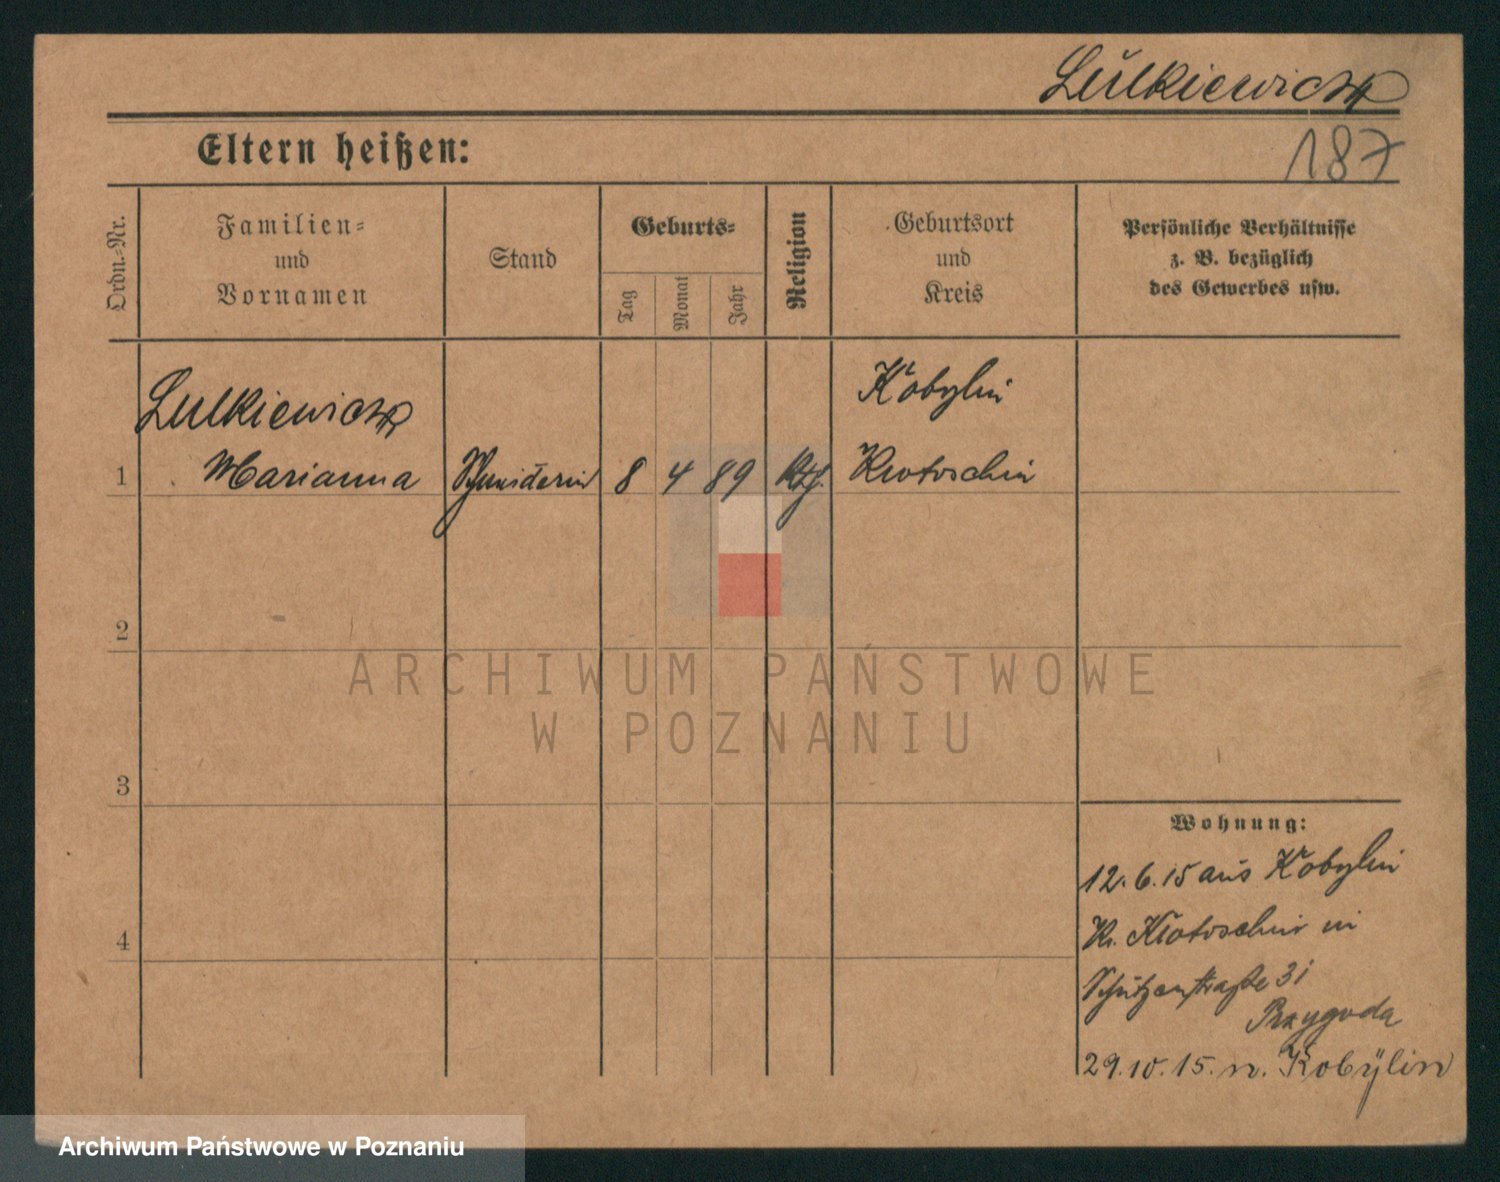 Lulkiewicz
Eltern heißen:
187
Ordn.-Nr.
Familien-
und
Vornamen
Stand
Geburts-
Tag
Monat
Jahr
Religion
Geburtsort
und
Kreis
Persönliche Verhältnisse
z. B. bezüglich
des Gewerbes usw.
Lulkiewicz
Kobylin
1 Marianna Schneiderin 8 4 89 Kth. Krotoschin
2
ARCHIWUM PAŃSTWOWE
W POZNANIU
3
Wohnung:
12.6.15 aus Kobylin
4
Kr. Krotoschin in
Schützenstraße 31
Przygoda
29.10.15. n. Kobylin
Archiwum Państwowe w Poznaniu